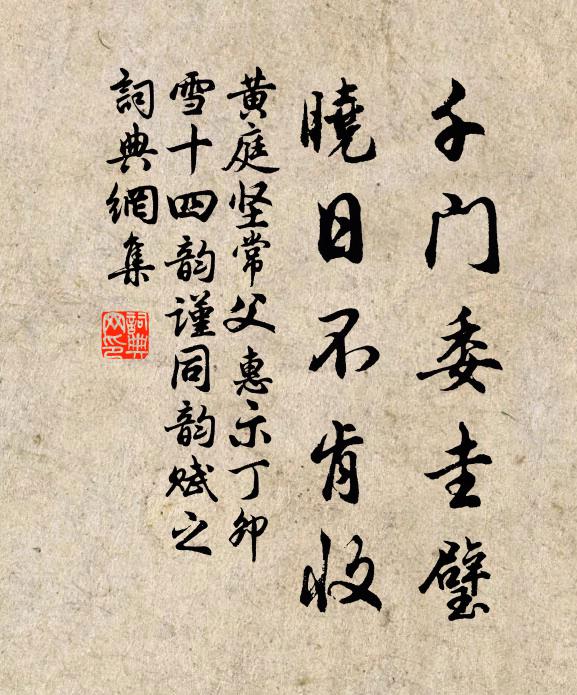 千門委圭璧
曉日不肯收
黄庭坚常父惠示丁卯
雪十四韵謹同韵赋之
詞典網集
詞典網印